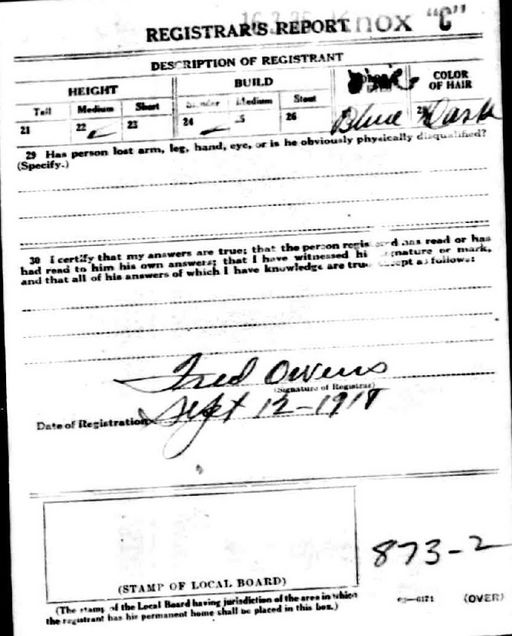 REGISTRAR'S REPORT Knox "C"
DESCRIPTION OF REGISTRANT
HEIGHT BUILD COLOR OF HAIR
Tall Medium Short Slender Medium Stout
21 22 23 24 25 26 Blue Dark
29 Has person lost arm, leg, hand, eye, or is he obviously physically disqualified?
(Specify.)
30 I certify that my answers are true; that the person registered has read or has
had read to him his own answers; that I have witnessed his signature or mark,
and that all of his answers of which I have knowledge are true, except as follows:
Fred Owens
(Signature of Registrar)
Date of Registration Sept 12-1918
(STAMP OF LOCAL BOARD)
873-2
(The stamp of the Local Board having jurisdiction of the area in which
the registrant has his permanent home shall be placed in this box.)
(OVER)